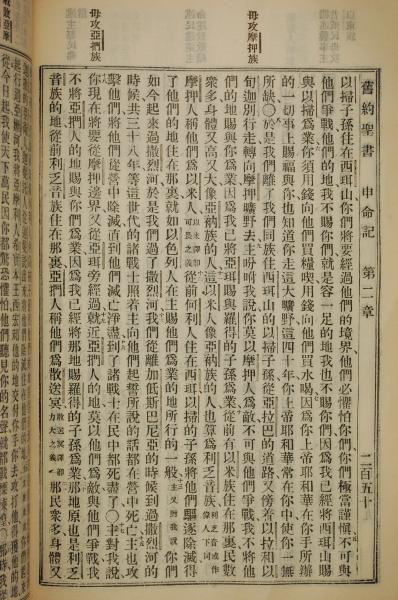 毋攻摩押族
毋攻亞捫族
舊約聖書 申命記 第二章 二百五十
以掃子孫住在西珥山你們將要經過他們的境界他們必懼怕你們你們極當謹愼不可與
他們爭戰他們的地我不賜你們就是容一足的地我也不賜你們因爲我已經將西珥山賜
與以掃爲業你須用錢向他們買糧喫用錢向他們買水喝因爲你上帝耶和華在你手所辦
的一切事上賜福與你也知道你走這大曠野這四十年你上帝耶和華常在你中使你一無
所缺○於是我們離了我們同族住西珥山的以掃子孫從亞拉巴的道路又傍着以拉和以
旬迦別行走轉向摩押曠野去主吩咐我說你莫以摩押人爲敵不可與他們爭戰我不將他
們的地賜與你爲業因爲我已將亞珥賜與羅得的子孫爲業從前有以米族住在那裏民數
衆多身體又高又大像亞衲族的人這以米人像亞衲族的人也算爲利乏音族
摩押人稱他們爲以米人從前何利人住在西珥以掃的子孫將他們驅逐除滅得
了他們的地住在那裏就如以色列人在主賜他們爲業的地所行的一般
如今起來過撒烈河於是我們過了撒烈河我們從離加低斯巴尼亞的時候到過撒烈河的
時候共三十八年等這世代的諸戰士照着主向他們起誓所說的話都在營中死亡主也攻
擊他們將他們從營中除滅直到他們滅亡淨盡到了諸戰士在民中都死盡了○主對我說
你現在將要從摩押邊界又從亞珥旁經過就近亞捫人的地莫以他們爲敵與他們爭戰我
不將亞捫人的地賜與你們爲業因爲我已經將那地賜羅得的子孫爲業那地原也是利乏
音族的地從前利乏音族住在那裏亞捫人稱他們爲散送冥那民衆多身體又